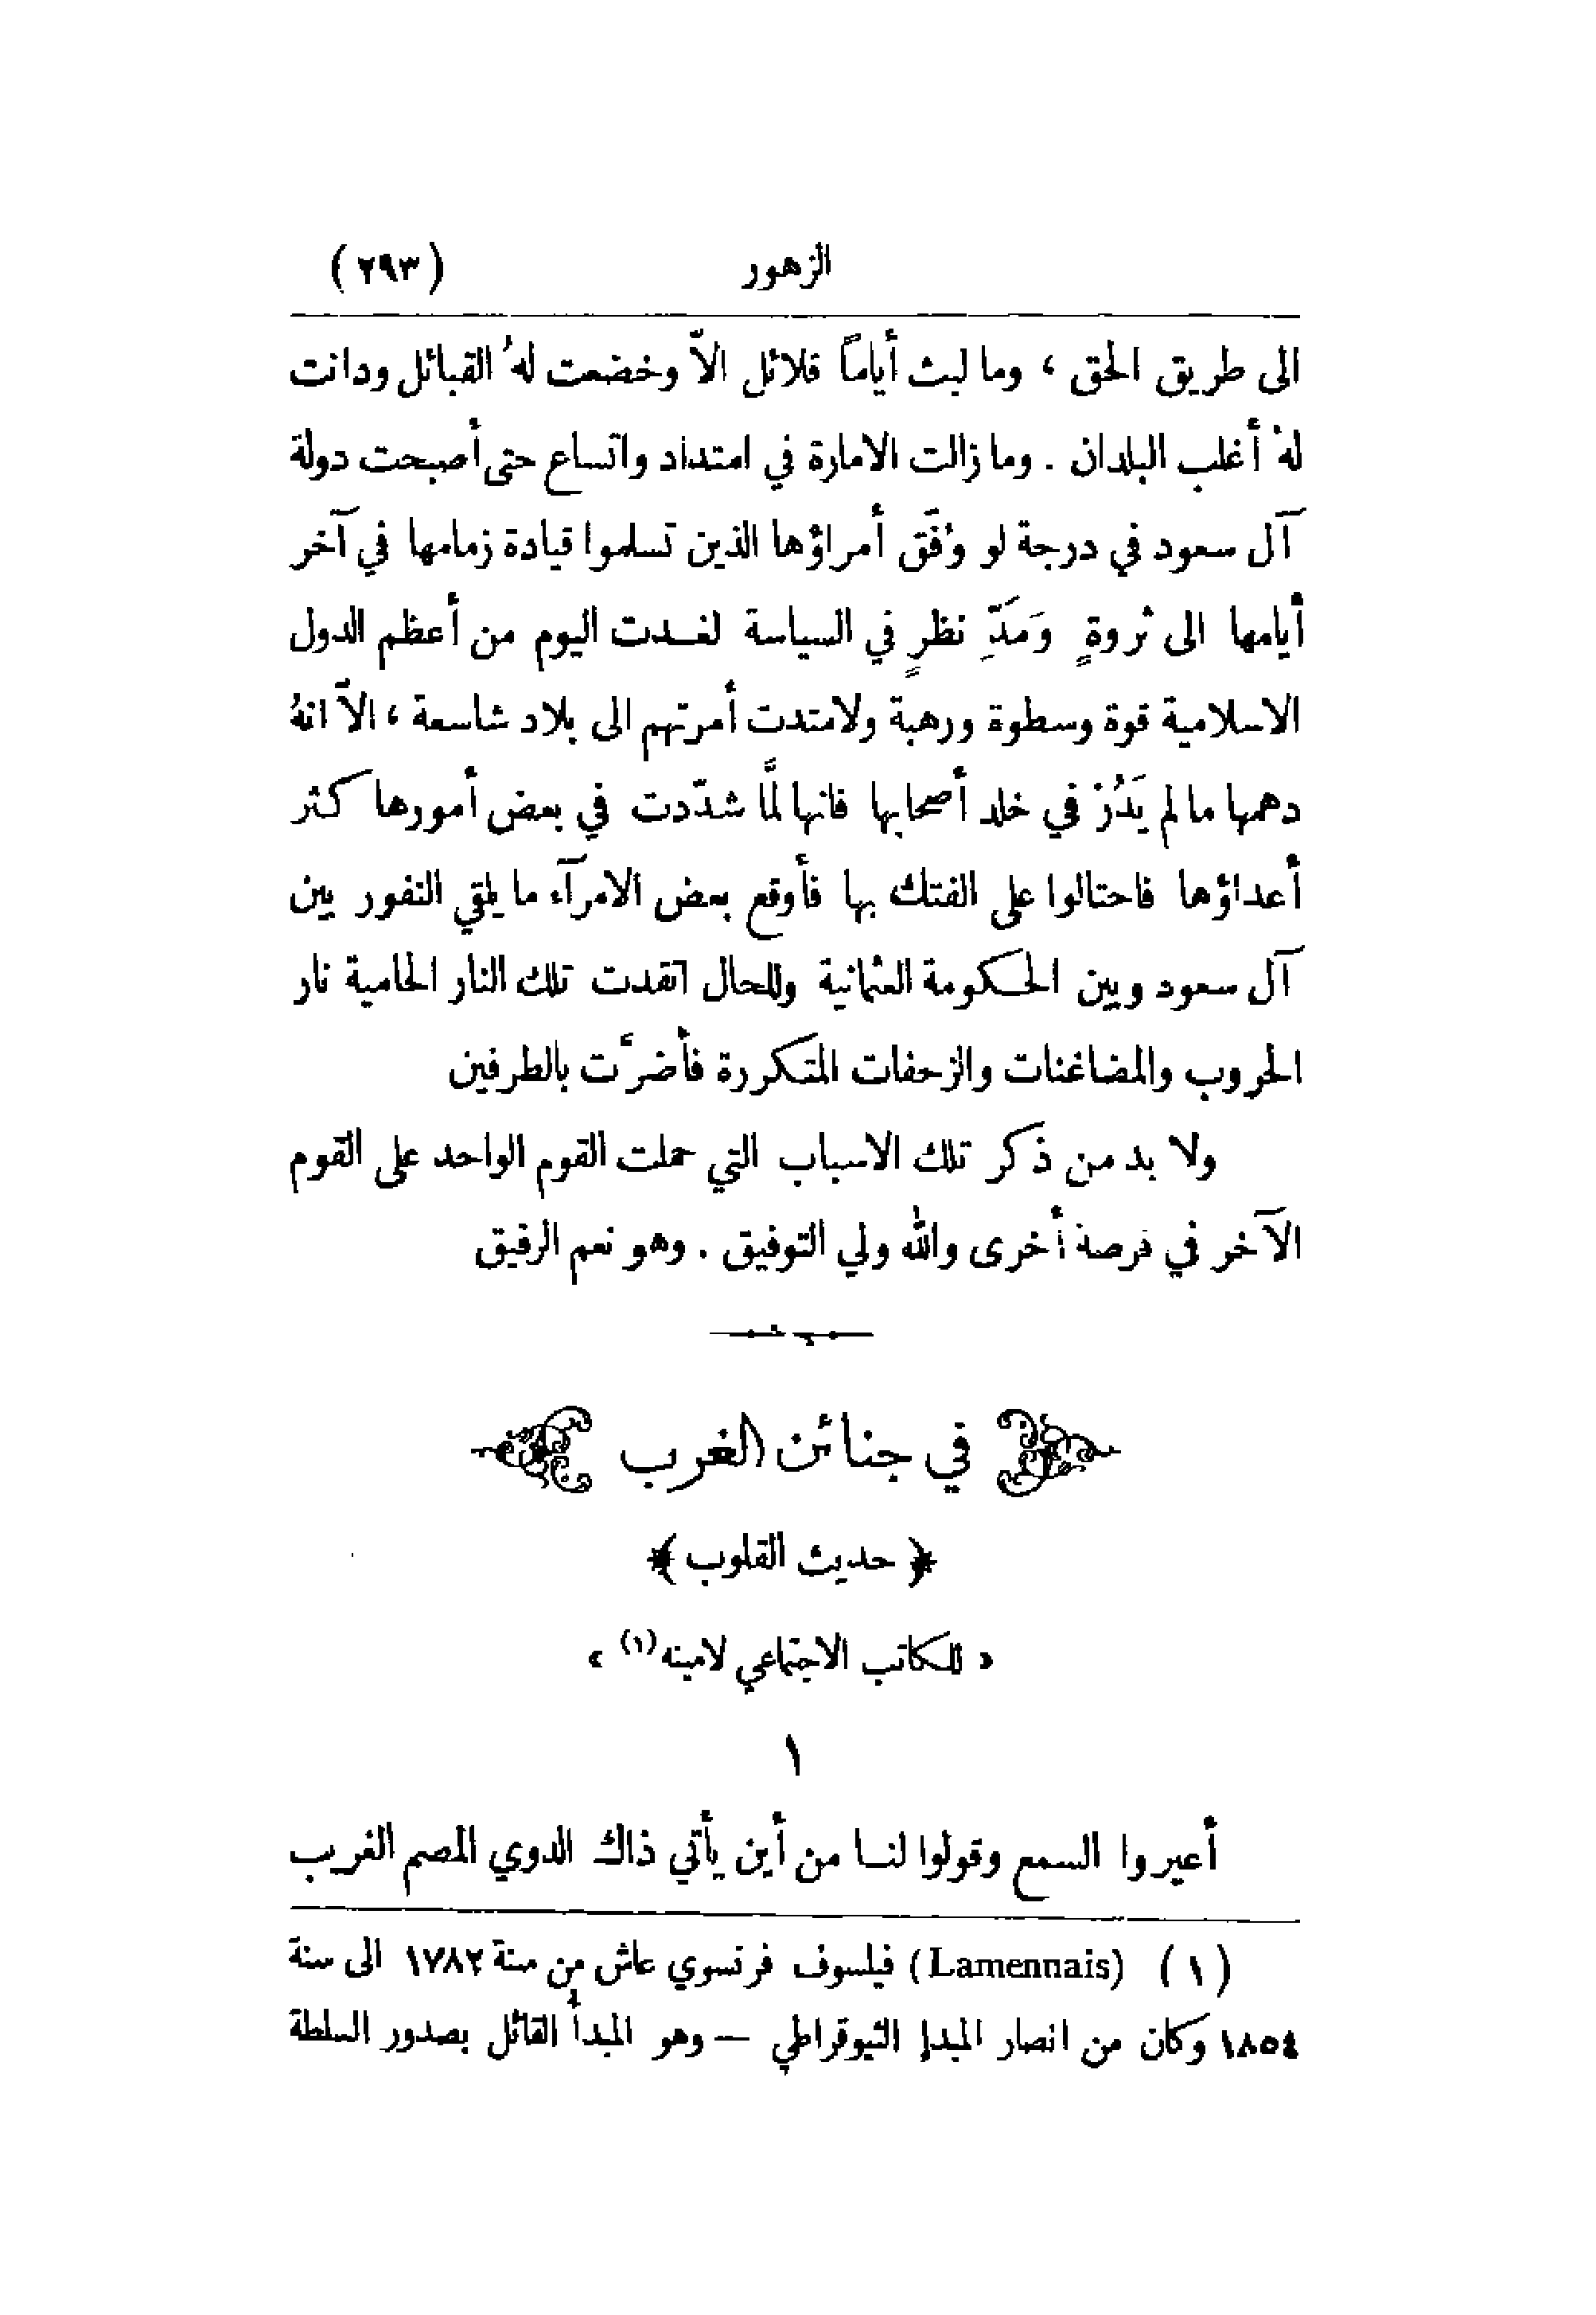 الزهور (٢٩٣)
الى طريق الحق ، وما لبث أياماً قلائل الاّ وخضعت لهُ القبائل ودانت
لهُ أغلب البلدان . وما زالت الامارة في امتداد واتساع حتى أصبحت دولة
آل سعود في درجة لو وُفّق أمراؤها الذين تسلموا قيادة زمامها في آخر
أيامها الى ثروةٍ وَمَدِّ نظرٍ في السياسة لغدت اليوم من أعظم الدول
الاسلامية قوة وسطوة ورهبة ولامتدت أمرتهم الى بلاد شاسعة ، الاّ انهُ
دهمها ما لم يَدُرْ في خلد أصحابها فانها لمَّا شدّدت في بعض أمورها كثر
أعداؤها فاحتالوا على الفتك بها فأوقع بعض الامرآء ما يلقي النفور بين
آل سعود وبين الحكومة العثمانية وللحال اتقدت تلك النار الحامية نار
الحروب والمضاغنات والزحفات المتكررة فأضرَّت بالطرفين
ولا بد من ذكر تلك الاسباب التي حملت القوم الواحد على القوم
الآخر في فرصة أخرى والله ولي التوفيق . وهو نعم الرفيق
في جنائن الغرب
﴿ حديث القلوب ﴾
« للكاتب الاجتماعي لامينه (١) »
١
أعيروا السمع وقولوا لنا من أين يأتي ذاك الدوي المصم الغريب
(١) (Lamennais) فيلسوف فرنسوي عاش من سنة ١٧٨٢ الى سنة
١٨٥٤ وكان من انصار المبدإ الثيوقراطي — وهو المبدأ القائل بصدور السلطة